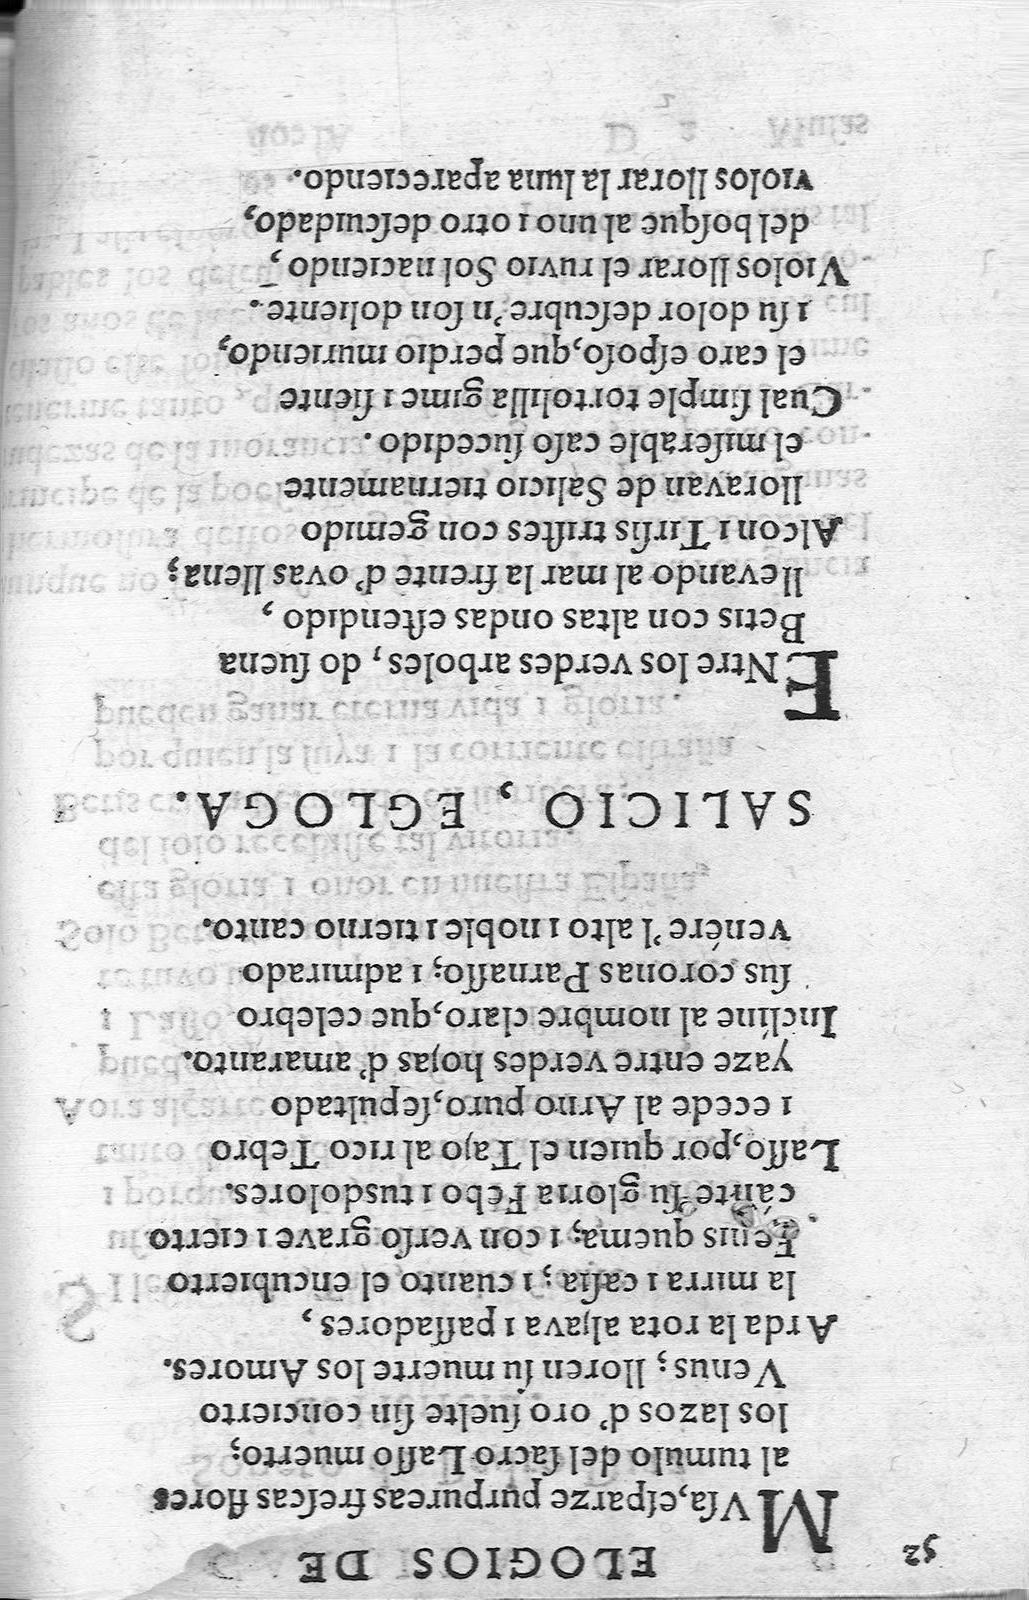 52
ELOGIOS DE
MVſa, eſparze purpureas freſcas flores
al tumulo del ſacro Laſſo muerto;
los lazos d'oro ſuelte ſin concierto
Venus; lloren ſu muerte los Amores.
Arda la rota aljava i paſſadores,
la mirra i caſia; i cuanto el encubierto
Fenis quema; i con verſo grave i cierto
cánte ſu gloria Febo i tus dolores.
Laſſo, por quien el Tajo al rico Tebro
i ecede al Arno puro, ſepultado
yaze entre verdes hojas d'amaranto.
Incline al nombre claro, que celebro
ſus coronas Parnaſſo; i admirado
venére 'l alto i noble i tierno canto.
SALICIO, EGLOGA.
ENtre los verdes arboles, do ſuena
Betis con altas ondas eſtendido,
llevando al mar la frente d'ovas llena;
Alcon i Tirſis triſtes con gemido
lloravan de Salicio tiernamente
el miſerable caſo ſucedido.
Cual ſimple tortolilla gime i ſiente
el caro eſpoſo, que perdio muriendo,
i ſu dolor deſcubre 'n ſon doliente.
Violos llorar el ruvio Sol naciendo,
del boſque al uno i otro deſcuidado,
violos llorar la luna apareciendo.
D 2